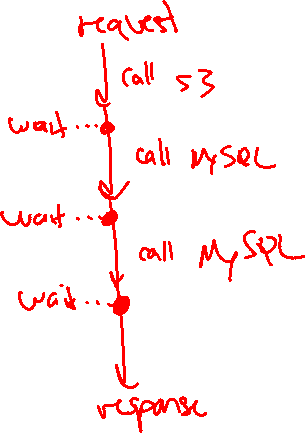 request
call S3
wait...
call MySQL
wait...
call MySQL
wait...
response